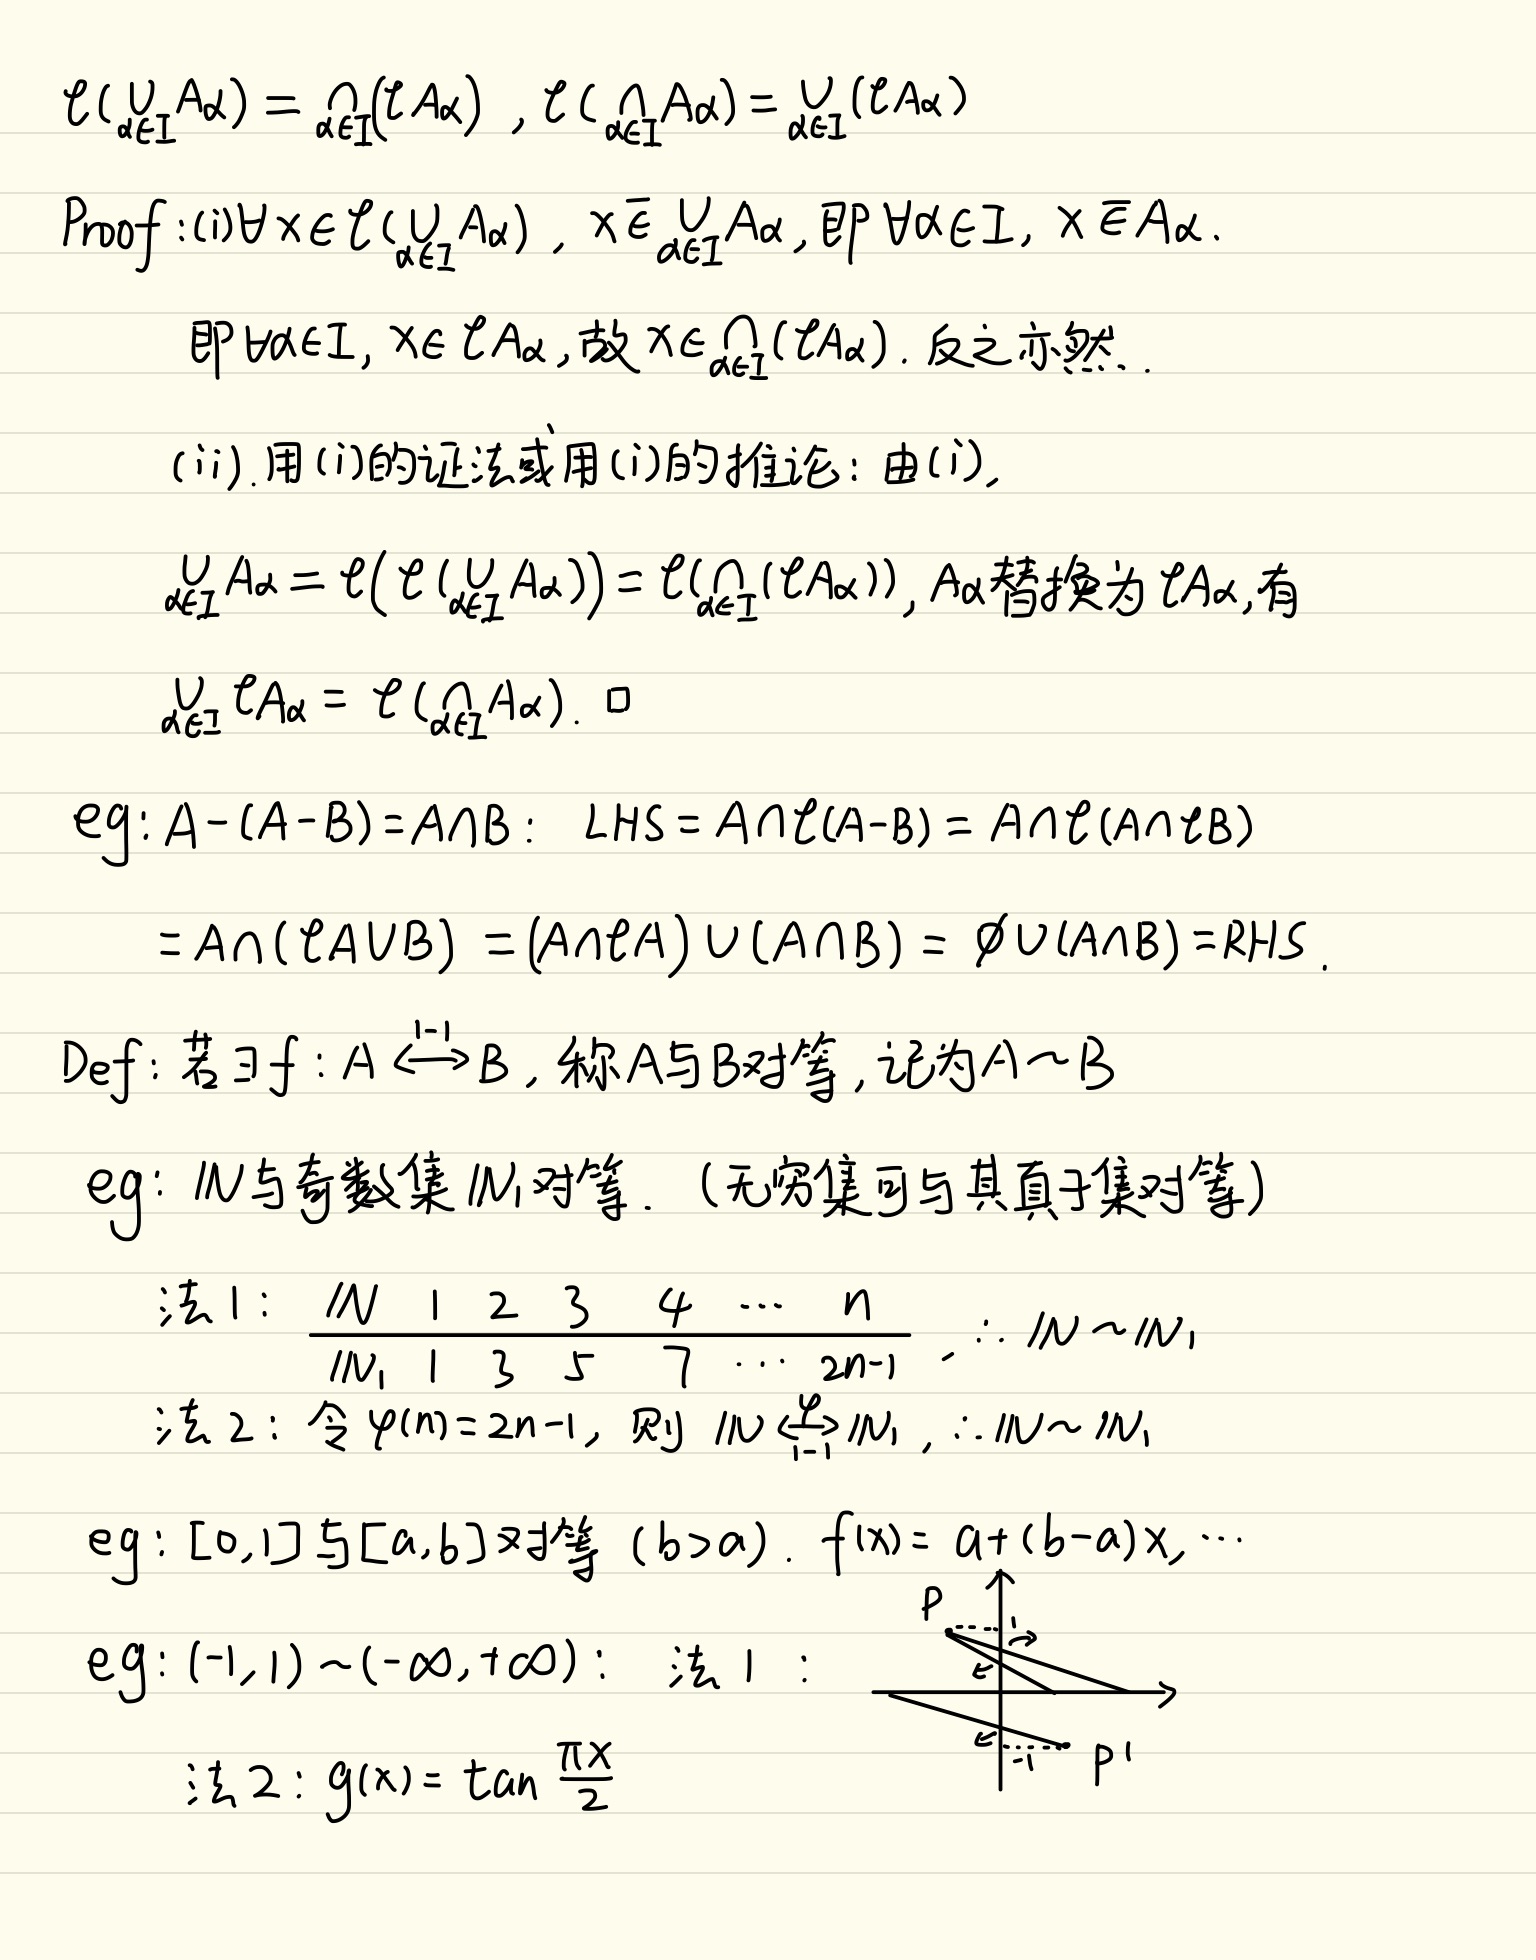 ∁(∪_{α∈I} A_α) = ∩_{α∈I}(∁A_α) , ∁(∩_{α∈I} A_α) = ∪_{α∈I}(∁A_α)
Proof:(i)∀x∈∁(∪_{α∈I} A_α) , x∈̅ ∪_{α∈I} A_α, 即∀α∈I, x∈̅A_α.
即∀α∈I, x∈∁A_α,故x∈∩_{α∈I}(∁A_α). 反之亦然.
(ii).用(i)的证法或用(i)的推论: 由(i),
∪_{α∈I} A_α = ∁(∁(∪_{α∈I} A_α)) = ∁(∩_{α∈I}(∁A_α)), A_α替换为∁A_α,有
∪_{α∈I} ∁A_α = ∁(∩_{α∈I} A_α). □
eg: A-(A-B)=A∩B: LHS=A∩∁(A-B)=A∩∁(A∩∁B)
=A∩(∁A∪B) =(A∩∁A)∪(A∩B)=∅∪(A∩B)=RHS.
Def: 若∃f: A \xleftrightarrow{1-1} B, 称A与B对等,记为A~B
eg: ℕ与奇数集ℕ₁对等. (无穷集可与其真子集对等)
法1: ℕ 1 2 3 4 … n
ℕ₁ 1 3 5 7 … 2n-1 , ∴ ℕ~ℕ₁
法2: 令φ(n)=2n-1, 则 ℕ \xleftrightarrow[1-1]{φ} ℕ₁, ∴ℕ~ℕ₁
eg: [0,1]与[a,b]对等 (b>a). f(x)=a+(b-a)x, …
eg: (-1,1)~(-∞,+∞): 法1:
P
1
-1
P'
法2: g(x)=tan \frac{πx}{2}